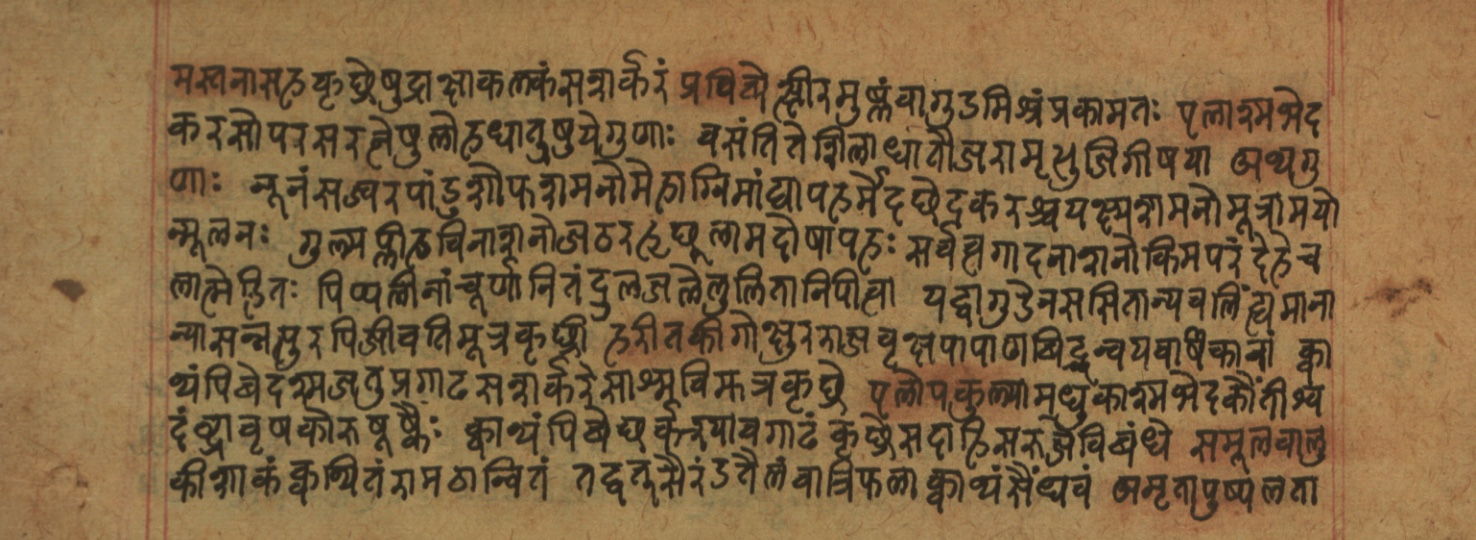 मस्तनासहकृछ्रेषुद्राक्षाकल्कंसशर्करं प्रपिबेत्क्षीरमुष्णंवागुडमिश्रंप्रकामतः एलाश्मभेद
करसोपरसरत्नेषुलोहधातुषुयेगुणाः वसंतितेशिलाधातौजरामृत्युजिगीषया अथगु
णाः नूनंसज्वरपांडुशोफशमनोमेहाग्निमांद्यापहर्मेदछेदकरश्चयक्ष्मशमनोमूत्रामयो
न्मूलनः गुल्मप्लीहविनाशनोजठरहृछूलामदोषापहः सर्वत्वग्गदनाशनोकिमपरंदेहेच
पिप्पलीनांचूर्णानितंदुलजलैलुलितानिपीत्वा यद्वागुडेनससितान्यवलिंह्यमाना
न्यासन्नमृत्युरपिजीवतिमूत्रकृछ्री हरीतकीगोक्षुरराजवृक्षपाषाणभिद्धन्वयवाषकानां क्वा
थंपिबेद सशर्करे कृछ्रे एलोपकुल्यामधुकाश्मभेदकौंतीश्व
दंष्ट्रावृषकोरुबूकैः क्वाथंपिबे कृछ्रेसदाहेसरुजेविबंधे समूल
क्वथितं रामठान्वितं तैलंवात्रिफलाक्वाथंसैंधवं अमृतापुष्पलता